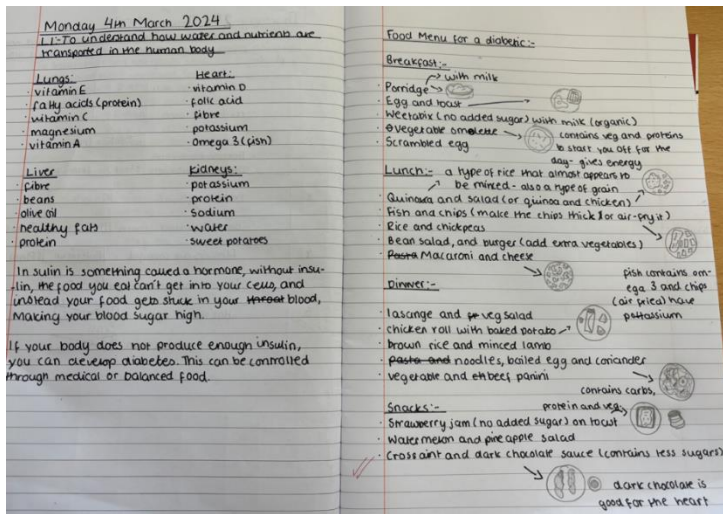 Monday 4th March 2024
LI:-To understand how water and nutrients are
transported in the human body
Lungs:
· vitamin E
· fatty acids (protein)
· vitamin C
· magnesium
· vitamin A
Heart:
· vitamin D
· folic acid
· fibre
· potassium
· Omega 3 (fish)
Liver
· fibre
· beans
· olive oil
· healthy fats
· protein
Kidneys:
· potassium
· protein
· sodium
· water
· sweet potatoes
Insulin is something called a hormone, without insu-
lin, the food you eat can't get into your cells, and
instead your food gets stuck in your throat blood,
Making your blood sugar high.
If your body does not produce enough insulin,
you can develop diabetes. This can be controlled
through medical or balanced food.
Food Menu for a diabetic:-
Breakfast:-
with milk
· Porridge
· Egg and toast
· Weetabix (no added sugar) with milk (organic)
· Vegetable omelette
contains veg and proteins
to start you off for the
day- gives energy
· Scrambled egg
Lunch:-
a type of rice that almost appears to
be minced - also a type of grain
· Quinova and salad (or quinoa and chicken)
· Fish and chips (make the chips thick / or air-fry it)
· Rice and chickpeas
· Bean salad, and burger (add extra vegetables)
· Pasta Macaroni and cheese
fish contains om-
ega 3 and chips
(air fried) have
pottassium
Dinner:-
· lasange and veg salad
· chicken roll with baked potato
· brown rice and minced lamb
· pasta and noodles, boiled egg and coriander
· vegetable and beef panini
contains carbs,
protein and veg.
Snacks:-
· Strawberry jam (no added sugar) on toast
· Watermelon and pineapple salad
· Crossaint and dark chocolate sauce (contains less sugars)
dark chocolate is
good for the heart